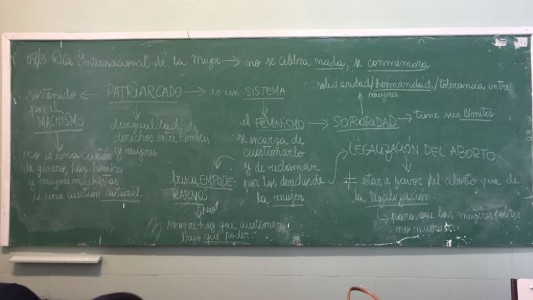 08/3 Día Internacional de la Mujer → no se celebra nada, se conmemora
solidaridad/hermandad/tolerancia entre
mujeres
sostenido ← PATRIARCADO → es un SISTEMA
por el
MACHISMO
desigualdad de
derechos entre hombres
y mujeres
el FEMINISMO → SORORIDAD → tiene sus límites
se encarga de
cuestionarlo
y de reclamar
por los derechos de
la mujer
no es una cuestión
de género, hay hombres
y mujeres machistas
es una cuestión cultural
busca EMPODE
RARNOS
siempre hay que cuestionar
bajo qué poder
LEGALIZACIÓN DEL ABORTO
≠ estar a favor del aborto que de
la legalización
para que las mujeres pobres
no mueran